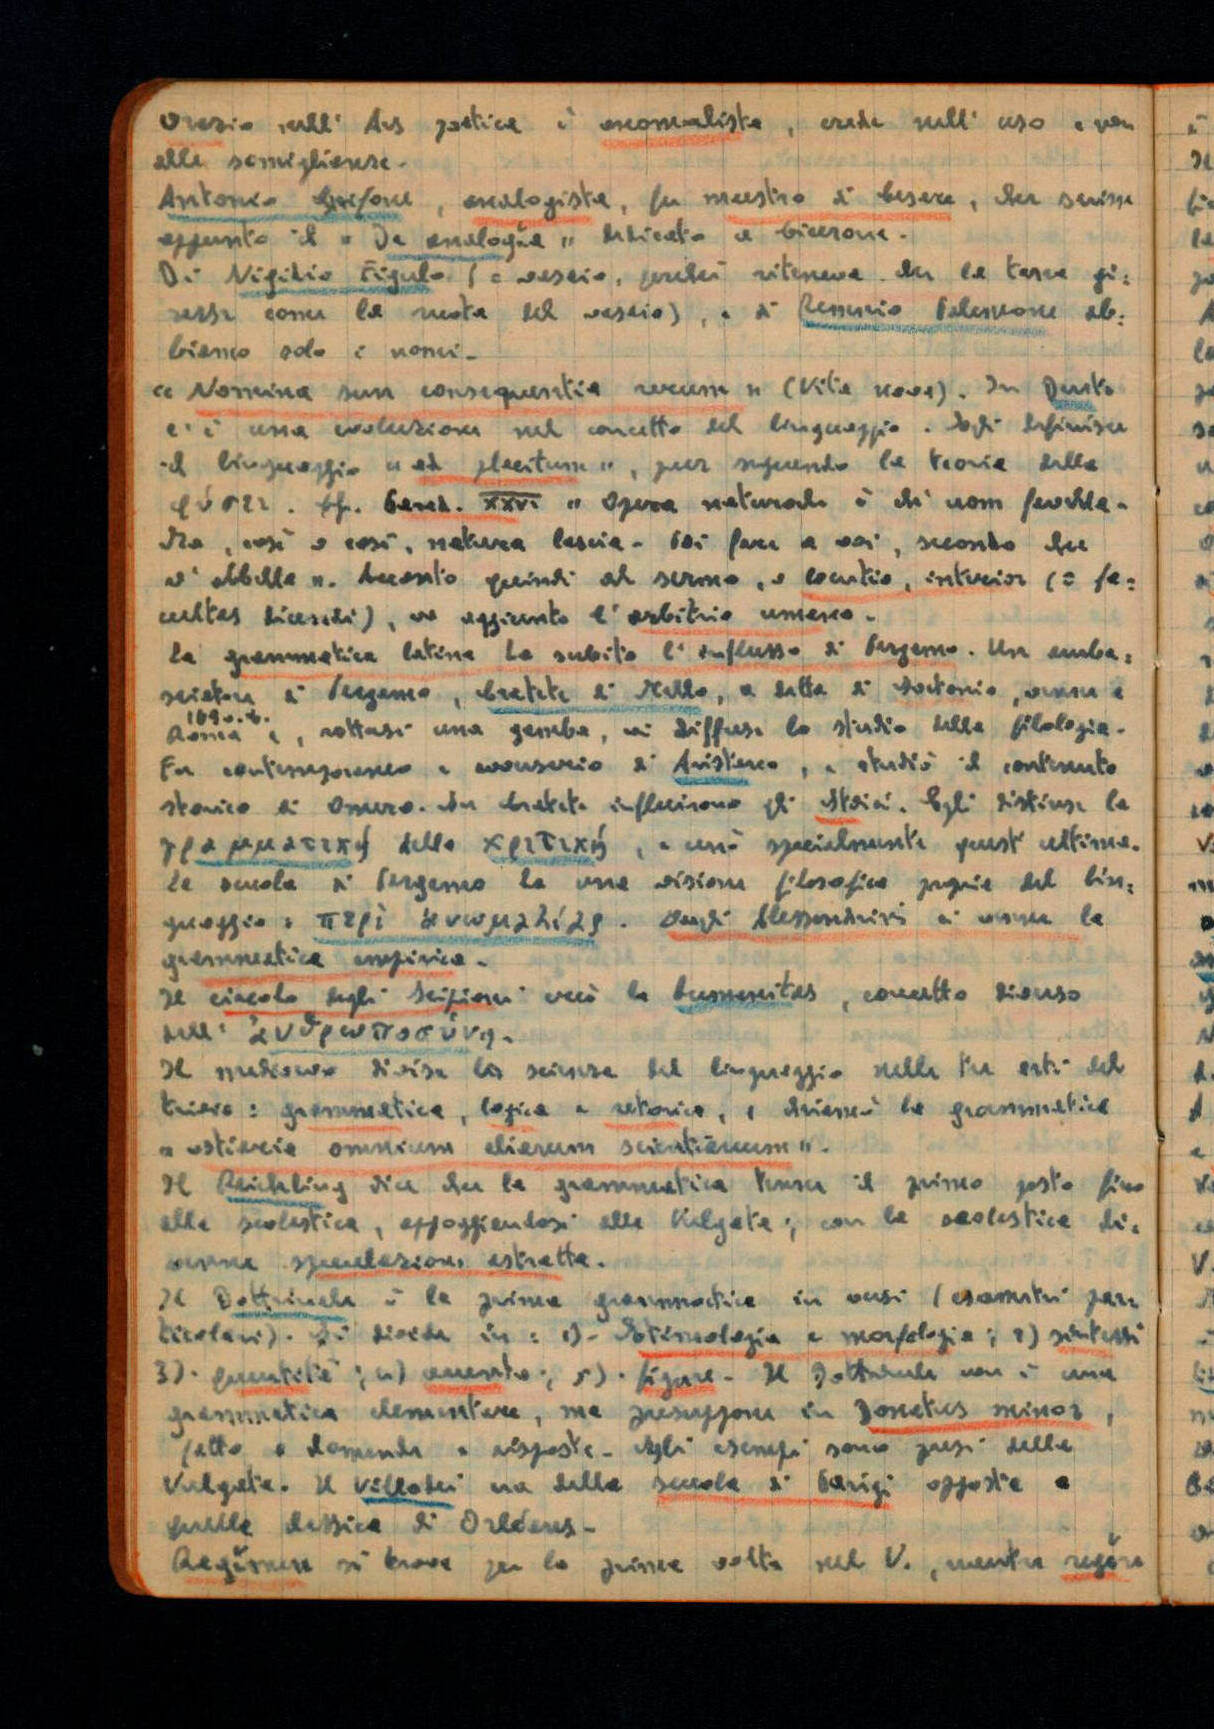 Orazio nell' Ars poetica è anomalista, crede nell' uso e non
alle somiglianze.
Antonio Grifone, analogista, fu maestro di Cesare, che scrisse
appunto il « De analogia » dedicato a Cicerone.
Di Nigidio Figulo (= vasaio, perché riteneva che la terra gi=
rasse come la ruota del vasaio), e di Remmio Palemone ab=
biamo solo i nomi.
« Nomina sunt consequentia rerum » (Vita nova). In Dante
c'è una evoluzione nel concetto del linguaggio. Egli definisce
il linguaggio « ad placitum », pur seguendo la teoria della
φύσει. Cfr. Parad. XXVI « Opera naturale è ch' uom favella-
Ma, così o così, natura lascia - Poi fare a voi, secondo che
v' abbella ». Accanto quindi al sermo, o locutio, interior (= fa=
cultas dicendi), va aggiunto l' arbitrio umano.
La grammatica latina ha subito l' influsso di Pergamo. Un amba=
sciatore di Pergamo, Cratete di Mallo, a detta di Svetonio, venne a
169 a. C.
Roma e, rottasi una gamba, vi diffuse lo studio della filologia.
Fu contemporaneo e avversario di Aristarco, e studiò il contenuto
storico di Omero. Su Cratete influirono gli Stoici. Egli distinse la
γραμματική dalla κριτική, e curò specialmente quest' ultima.
La scuola di Pergamo ha una visione filosofica propria del lin=
guaggio: περὶ ἀνωμαλίας. Dagli Alessandrini ci venne la
grammatica empirica.
Il circolo degli Scipioni creò la humanitas, concetto diverso
dell' ἀνθρωποσύνη.
Il medioevo divise la scienza del linguaggio nelle tre arti del
trivio: grammatica, logica e retorica, e chiamò la grammatica
« ostiaria omnium aliarum scientiarum ».
Il Reichling dice che la grammatica tenne il primo posto fino
alla scolastica, appoggiandosi alla Vulgata; con la scolastica di=
venne speculazione astratta.
Il Dottrinale è la prima grammatica in versi (esametri par
ticolari). Si divide in: 1)- Etimologia e morfologia; 2) sintassi
3)- quantità; 4) accento; 5)- figure. Il Dottrinale non è una
grammatica elementare, ma presuppone un Donatus minor,
fatto a domanda e risposta. Gli esempi sono presi dalla
Vulgata. Il Villadei era della scuola di Parigi opposta a
quella classica di Orléans.
Regĭmen si trova per la prima volta nel V., mentre regĕre